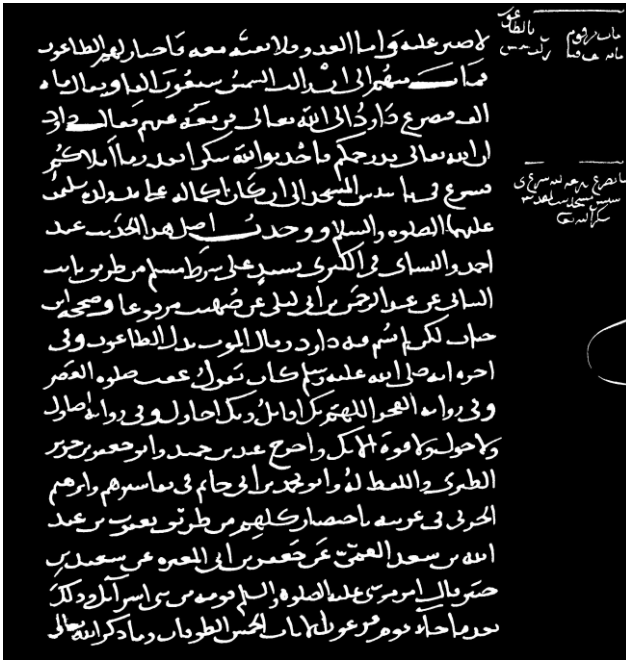 لا صبر عليه واما العدو فلا بقية معه فاختار لهم الطاعون
فمات منهم الى ان زالت الشمس سبعون الفا ويقال ماىة
الف فتضرع داود الى الله تعالى فرفعه عنهم فقال داود
ان الله تعالى قد رحمكم فاحدثوا لله شكرا بقدر ما ابلاكم
فشرع في تاسيس المسجد الى ان كان اكماله على يد ولده سليمن
عليهما الصلوة والسلام ووجدت اصل هذا الحديث عند
احمد والنساي في الكبرى بسند على شرط مسلم من طريق ثابت
البناني عن عبد الرحمن بن ابي ليلى عن صهيب مرفوعا وصححه ابن
حبان لكن لم يسم فيه داود وقال الموت بدل الطاعون وفي
اخره انه صلى الله عليه وسلم كان يقول عقب صلوة العصر
وفي رواية الفجر اللهم بك اقاتل وبك احاول وفي رواية اصاول
ولا حول ولا قوة الا بك واخرج عبد بن حميد وابو جعفر بن جرير
الطبري واللفظ له وابو محمد بن ابي حاتم في تفاسيرهم وابرهيم
الحربي في غريبه باختصار كلهم من طريق يعقوب بن عبد
الله بن سعد القمي عن جعفر بن ابي المغيرة عن سعيد بن
جبير قال امر موسى عليه الصلوة والسلم قومه من بني اسرآئل وذلك
بعد ما جاء قوم فرعون الايات الخمس الطوفان وما ذكر الله تعالى